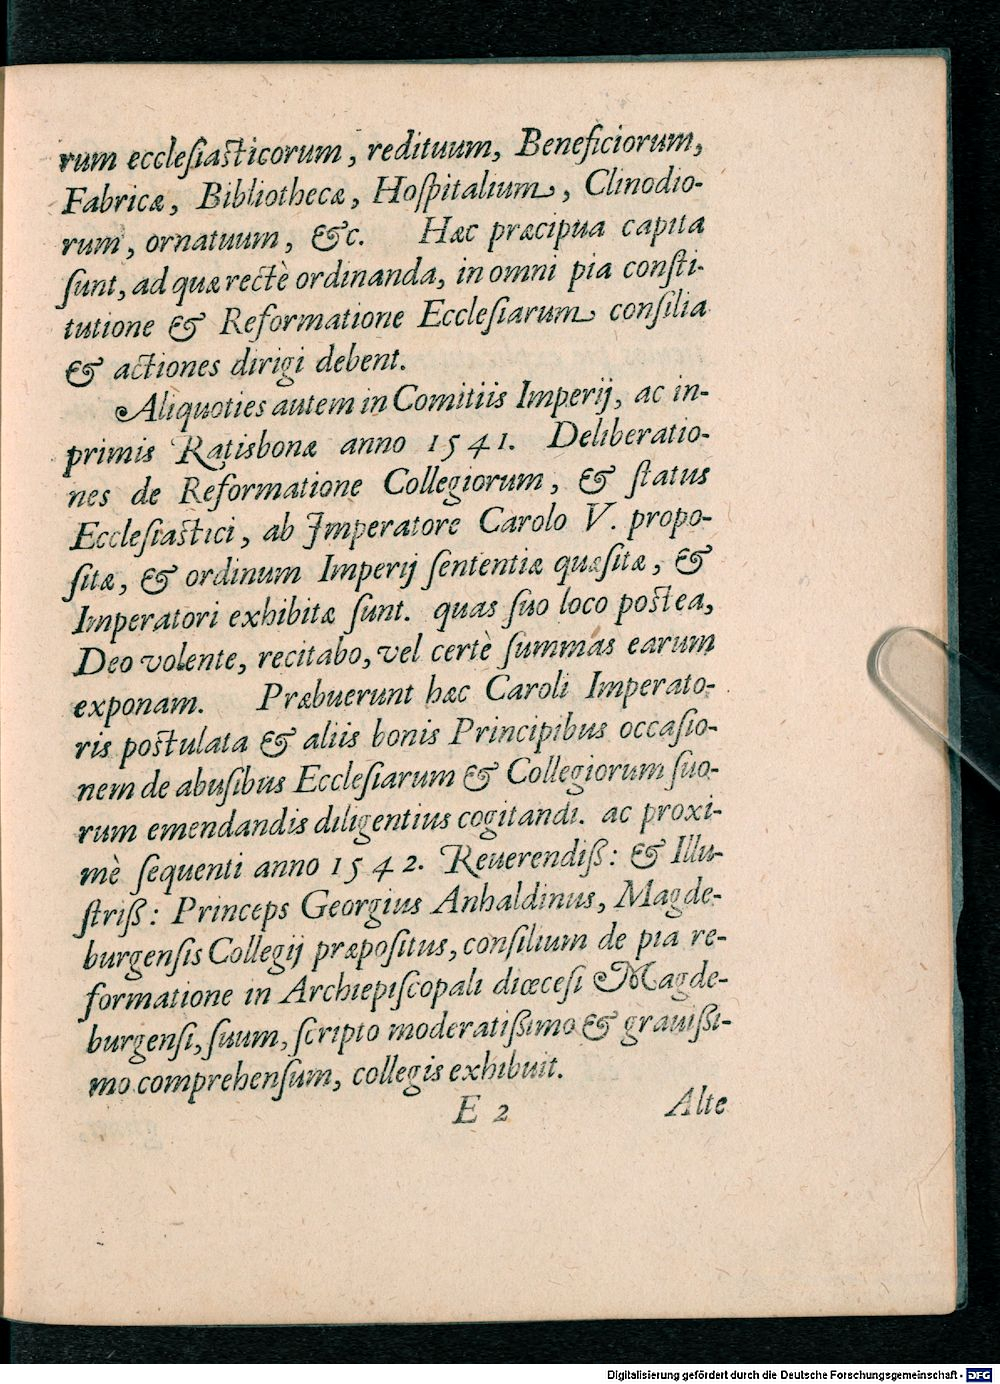 rum ecclesiasticorum, redituum, Beneficiorum,
Fabricæ, Bibliothecæ, Hospitalium, Clinodio-
rum, ornatuum, &c. Hæc præcipua capita
sunt, ad quæ rectè ordinanda, in omni pia consti-
tutione & Reformatione Ecclesiarum consilia
& actiones dirigi debent.
Aliquoties autem in Comitiis Imperij, ac in-
primis Ratisbonæ anno 1541. Deliberatio-
nes de Reformatione Collegiorum, & status
Ecclesiastici, ab Imperatore Carolo V. propo-
sitæ, & ordinum Imperij sententiæ quæsitæ, &
Imperatori exhibitæ sunt. quas suo loco postea,
Deo volente, recitabo, vel certè summas earum
exponam. Præbuerunt hæc Caroli Imperato-
ris postulata & aliis bonis Principibus occasio-
nem de abusibus Ecclesiarum & Collegiorum suo-
rum emendandis diligentius cogitandi. ac proxi-
mè sequenti anno 1542. Reuerendiß: & Illu-
striß: Princeps Georgius Anhaldinus, Magde-
burgensis Collegij præpositus, consilium de pia re-
formatione in Archiepiscopali diœcesi Magde-
burgensi, suum, scripto moderatißimo & grauißi-
mo comprehensum, collegis exhibuit.
E 2 Alte
Digitalisierung gefördert durch die Deutsche Forschungsgemeinschaft - DFG